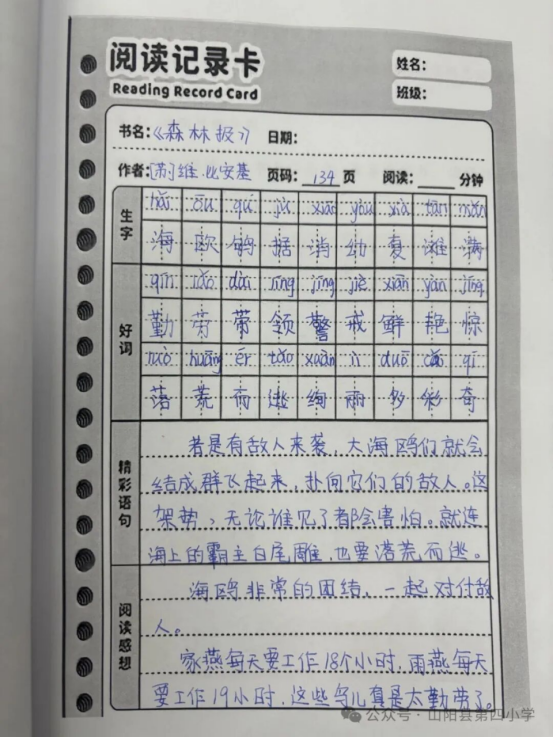 阅读记录卡
Reading Record Card
姓名：
班级：
书名：《森林报》 日期：
作者：[苏]维.比安基 页码：134页 阅读：____分钟
生字
hǎi ōu jù xiāo yòu xià tān mǎn
海 欧 鸲 据 消 幼 夏 滩 满
好词
qín láo dài lǐng jǐng jiè xiān yàn jīng
勤 劳 带 领 警 戒 鲜 艳 惊
luò huāng ér táo xuàn lì duō cǎi qí
落 荒 而 逃 绚 丽 多 彩 奇
精彩语句
若是有敌人来袭，大海鸥们就会
结成群飞起来，扑向它们的敌人。这
架势，无论谁见了都会害怕。就连
海上的霸主白尾雕，也要落荒而逃。
阅读感想
海鸥非常的团结，一起对付敌
人。
家燕每天要工作18个小时，雨燕每天
要工作19小时，这些鸟儿真是太勤劳了。
公众号·山阳县第四小学